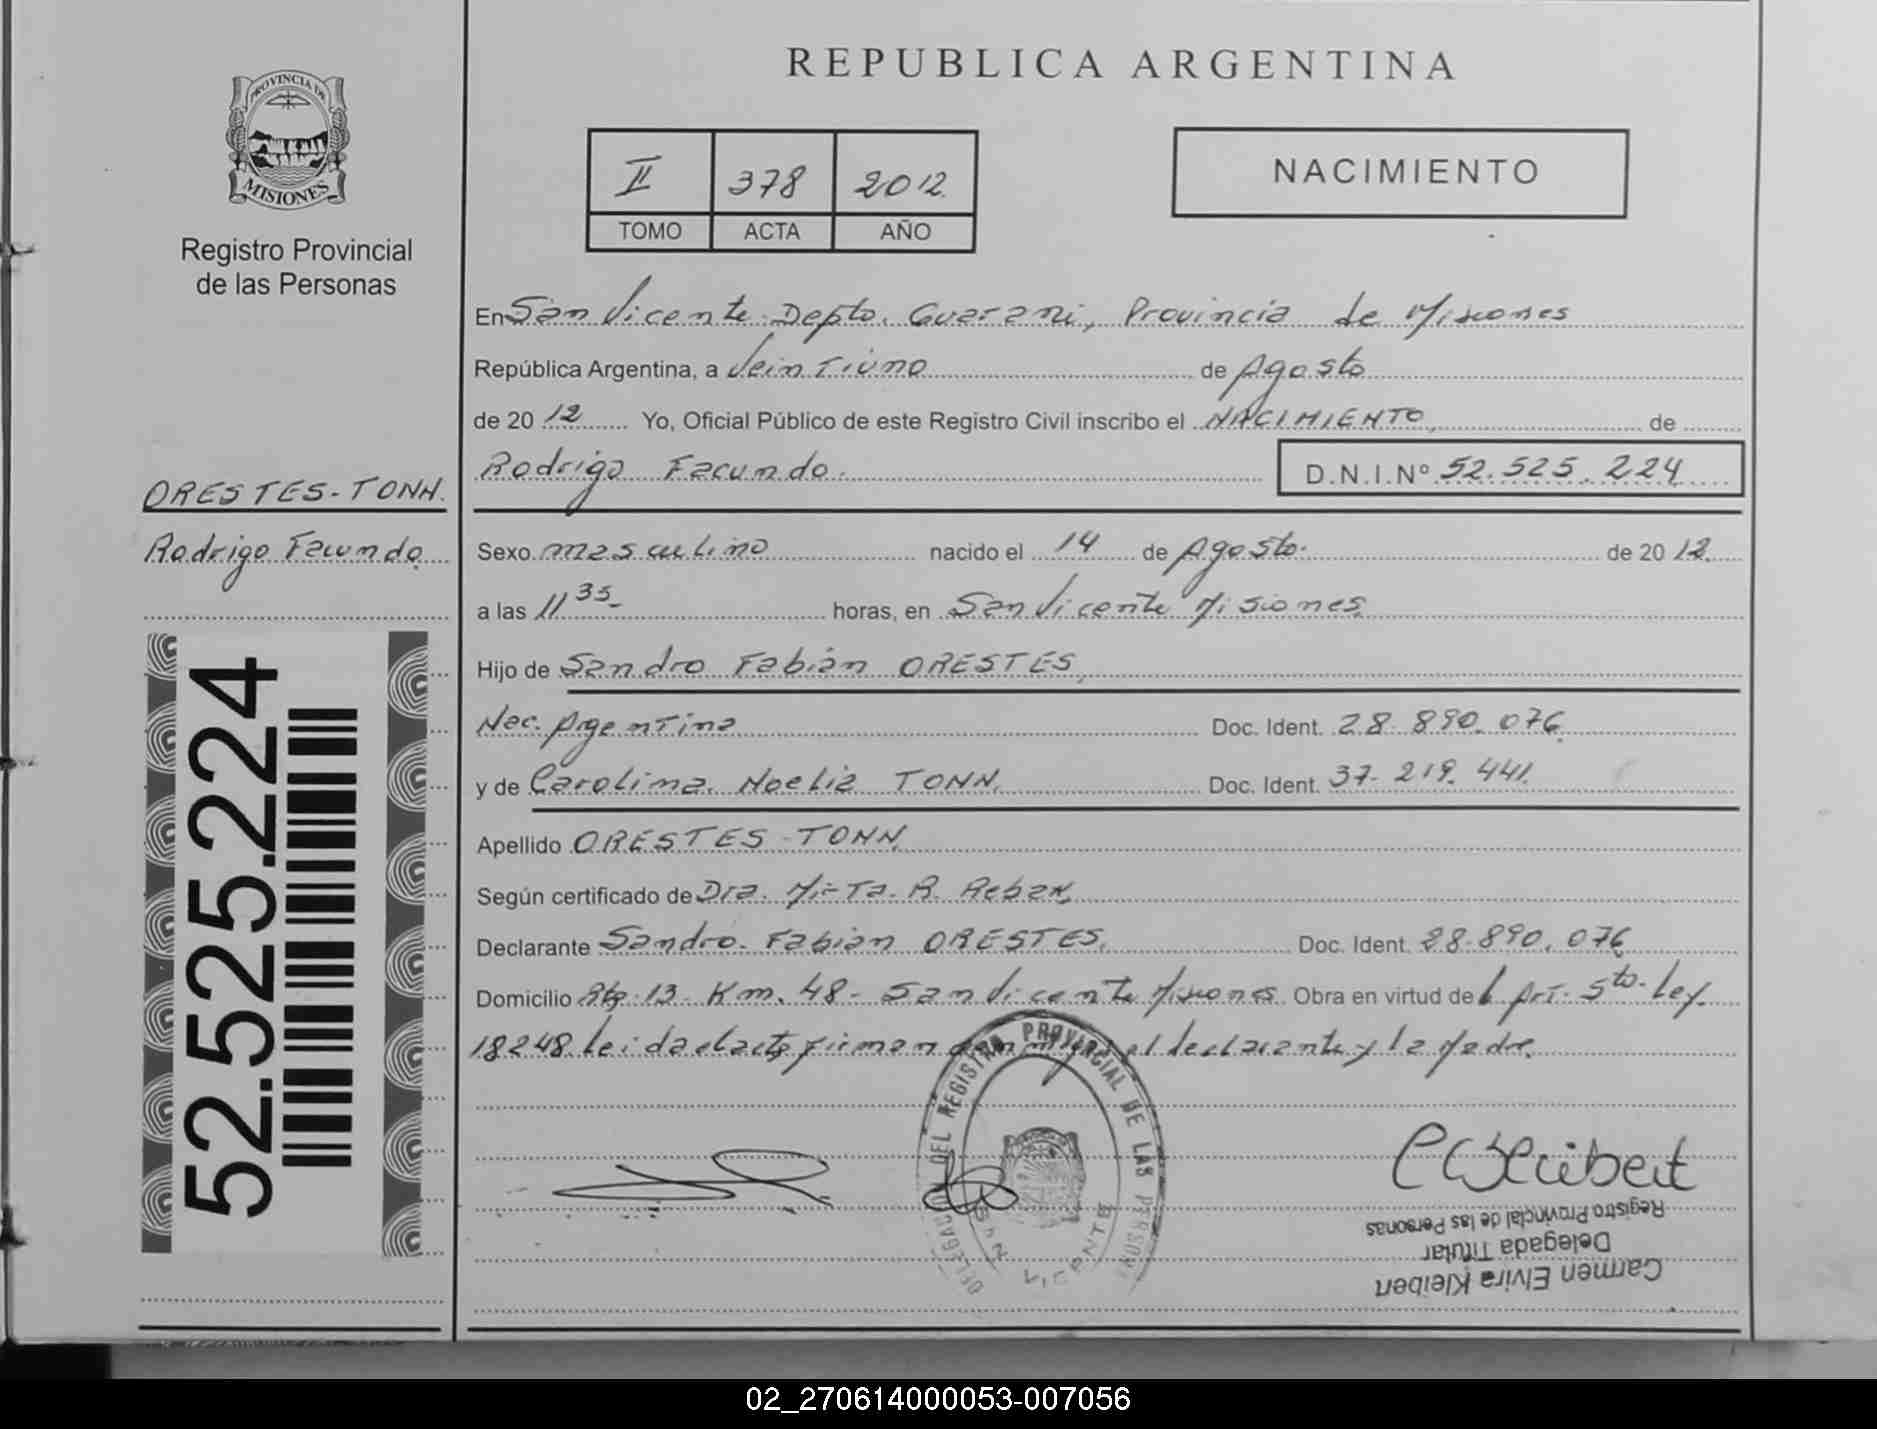 PROVINCIA DE
MISIONES
Registro Provincial
de las Personas
ORESTES-TONN.
Rodrigo Facundo
52.525.224
REPUBLICA ARGENTINA
II 378 2012
TOMO ACTA AÑO
NACIMIENTO
En San Vicente Depto. Guarani, Provincia de Misiones
República Argentina, a Veintiuno de Agosto
de 2012 Yo, Oficial Público de este Registro Civil inscribo el NACIMIENTO, de
Rodrigo Facundo. D.N.I.Nº 52.525.224
Sexo masculino nacido el 14 de Agosto. de 2012
a las 11 35 horas, en San Vicente Misiones
Hijo de Sandro Fabián ORESTES,
Nac. Argentina Doc. Ident. 28.890.076
y de Carolina Noelia TONN. Doc. Ident. 37.219.441
Apellido ORESTES-TONN
Según certificado de Dra. Mirta R.
Declarante Sandro Fabián ORESTES, Doc. Ident. 28.890.076
Domicilio Rta 13 Km. 48 - San Vicente Misiones. Obra en virtud del Art. 5to. Ley.
18248 leida el acta firman conmigo el declarante y la Madre.
DELEGACION DEL REGISTRO PROVINCIAL DE LAS PERSONAS
SAN VICENTE
CKleibert
Carmen Elvira Kleibert
Delegada Titular
Registro Provincial de las Personas
02_270614000053-007056